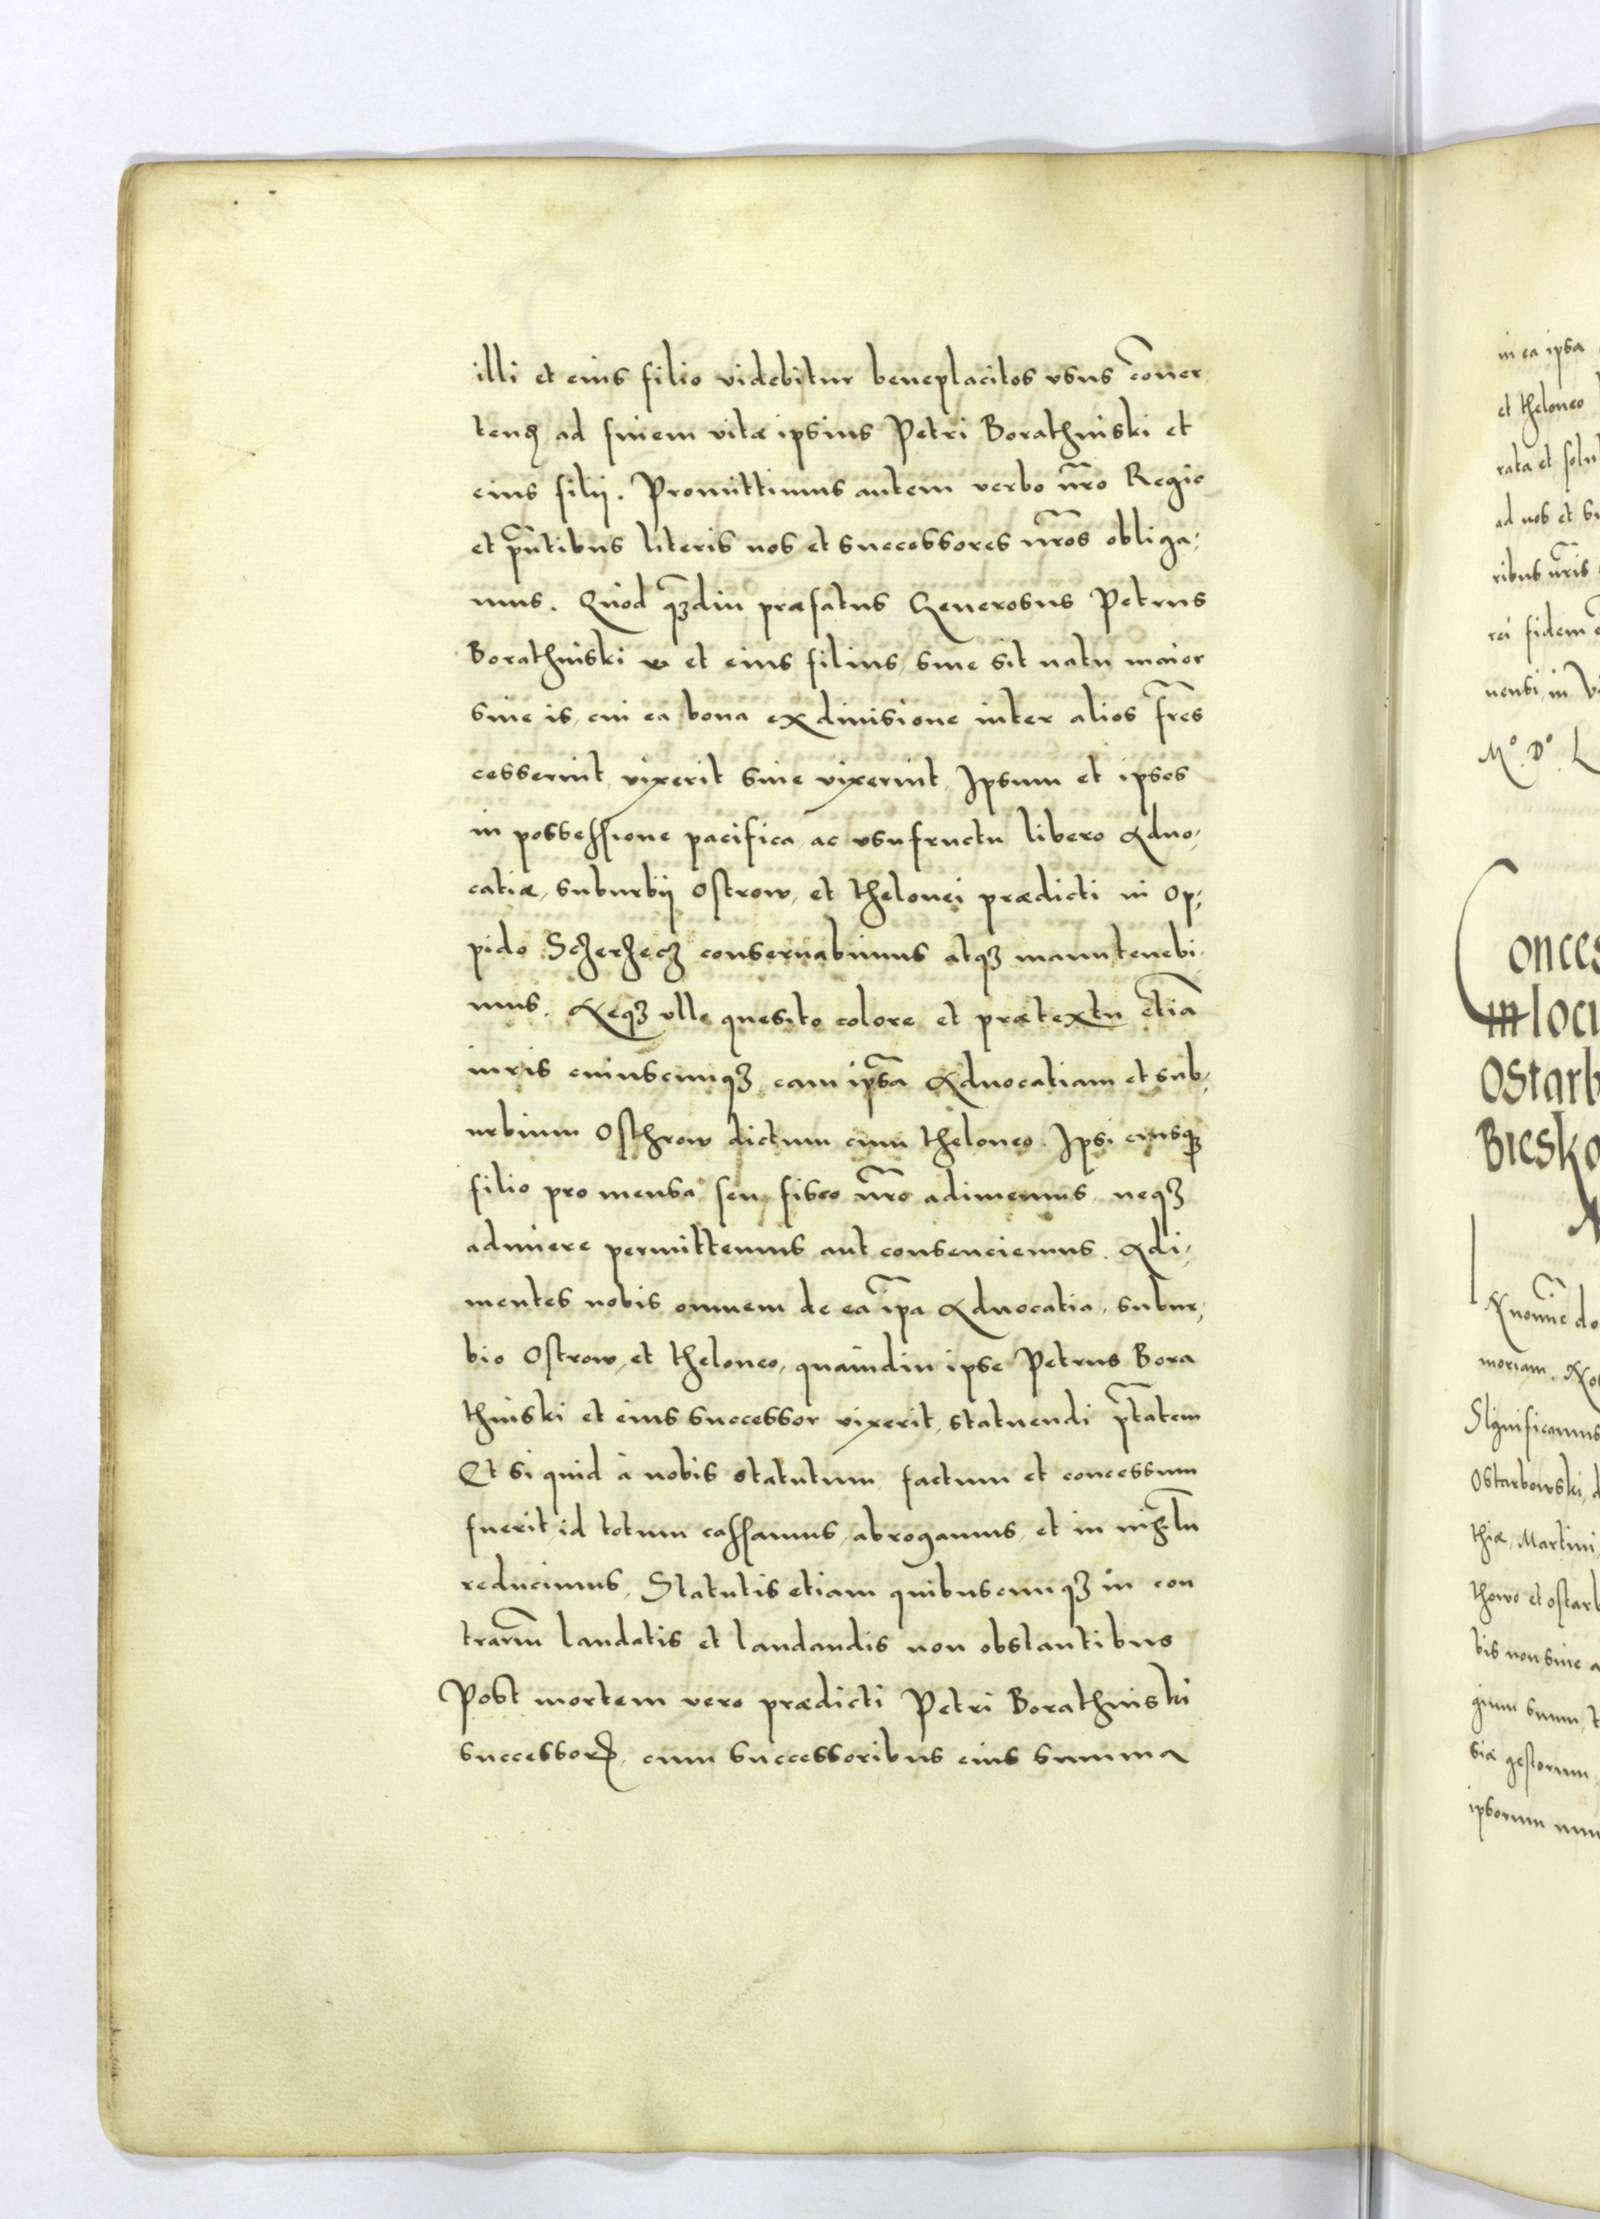 illi et eius filio videbitur beneplacitos vsus c̃onuer
tend̹ ad finem vitæ ipsius Petri Borathinski et
eius filij. Promittimus autem verbo nr̃o Regio
et pñtibus literis nos et successores nr̃os obliga-
mus. Quod qꝫ̃diu præfatus Generosus Petrus
Borathinski et eius filius, siue sit natu maior
siue is, cui ea bona ex diuisione inter alios fr̃es
cesserint, vixerit siue vixerint, Ipsum et ipsos
in possessione pacifica, ac vsufructu libero Aduo-
catiæ, suburbij Ostrow, et thelonei prædicti in Op-
pido Sczerzecz conseruabimus atqꝫ manutenebi-
mus. Neqꝫ vllo quesito colore et prætextu etiã
iuris cuiuscunqꝫ eam ip̃sa Aduocatiam et sub-
urbium Osthrow dictum cum theloneo. Ipsi eiusqꝫ
filio pro mensa seu fisco nr̃o adimemus neqꝫ
adimere permittemus aut consenciemus. Adi-
mentes nobis omnem de ea ip̃a Aduocatia, subur-
bio Ostrow, et theloneo, quamdiu ipse Petrus Bora
thinski et eius successor vixerit, statuendi p̃tatem
Et si quid à nobis statutum factum et concessum
fuerit, id totum cassamus, abrogamus, et in nihilũ
reducimus, Statutis etiam quibuscunqꝫ in con
trariũ laudatis et laudandis non obstantibus
Post mortem vero prædicti Petri Borathinski
successorꝭ, cum successoribus eius summa
in ea ipsa
et theloneo
rata et
ad nos et
ribus nr̃is
rei fidem
nensi, in
Mº. Dº. L
Conces
in locu
Ostarb
Biesko
Nomĩe do
moriam. No
Significamus
Ostarbowski, d
thiæ, Martini,
thowo et ostarb
bis non sine a
gium suum, t
siæ gestorum,
ipsorum